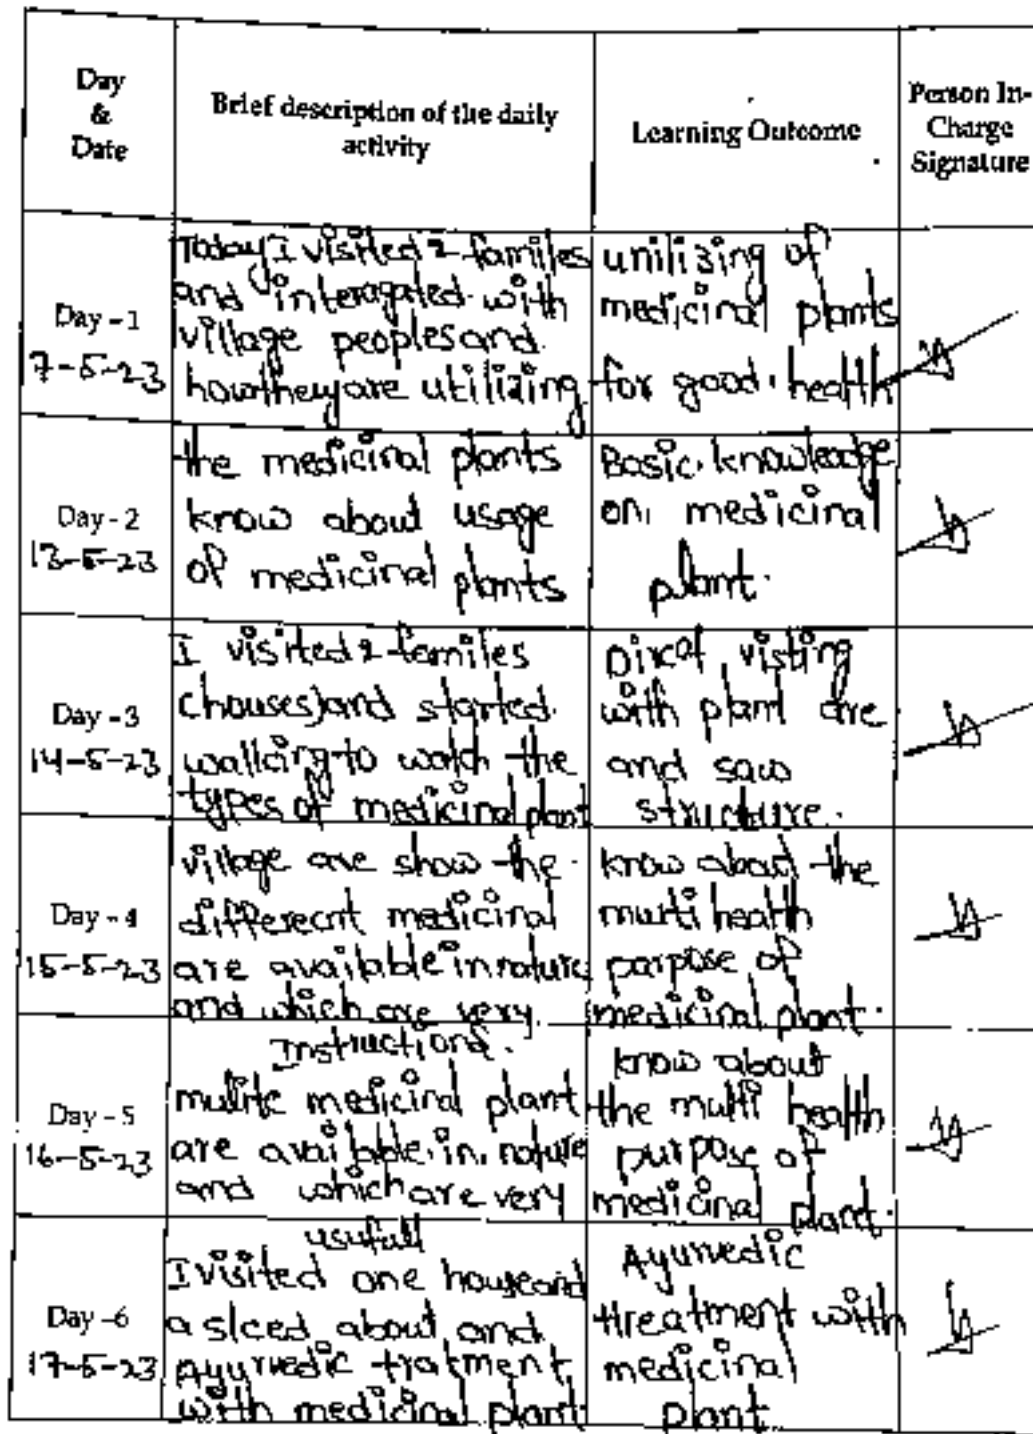 Day
&
Date
Brief description of the daily
activity
Learning Outcome
Person In-
Charge
Signature
Day - 1
7-5-23
Today I visited 2 familes
and interagated with
village peoples and
how they are utilizing
unilizing of
medicinal plants
for good health
Day - 2
13-5-23
the medicinal plants
know about usage
of medicinal plants
Basic knowledge
on medicinal
plant.
Day - 3
14-5-23
I visited 2 familes
(houses) and started
walking to watch the
types of medicinal plant
Dircat visting
with plant are
and saw
structure.
Day - 4
15-5-23
village are show the
differecnt medicinal
are available in nature
and which are very
know about the
multi health
parpose of
medicinal plant.
Day - 5
16-5-23
Instructions.
mulitc medicinal plant
are available in nature
and which are very
know about
the multi health
purpose of
medicinal plant.
Day - 6
17-5-23
usufull
I visited one house and
asked about and
Ayurvedic tratment
with medicinal plant
Ayurvedic
treatment with
medicinal
plant